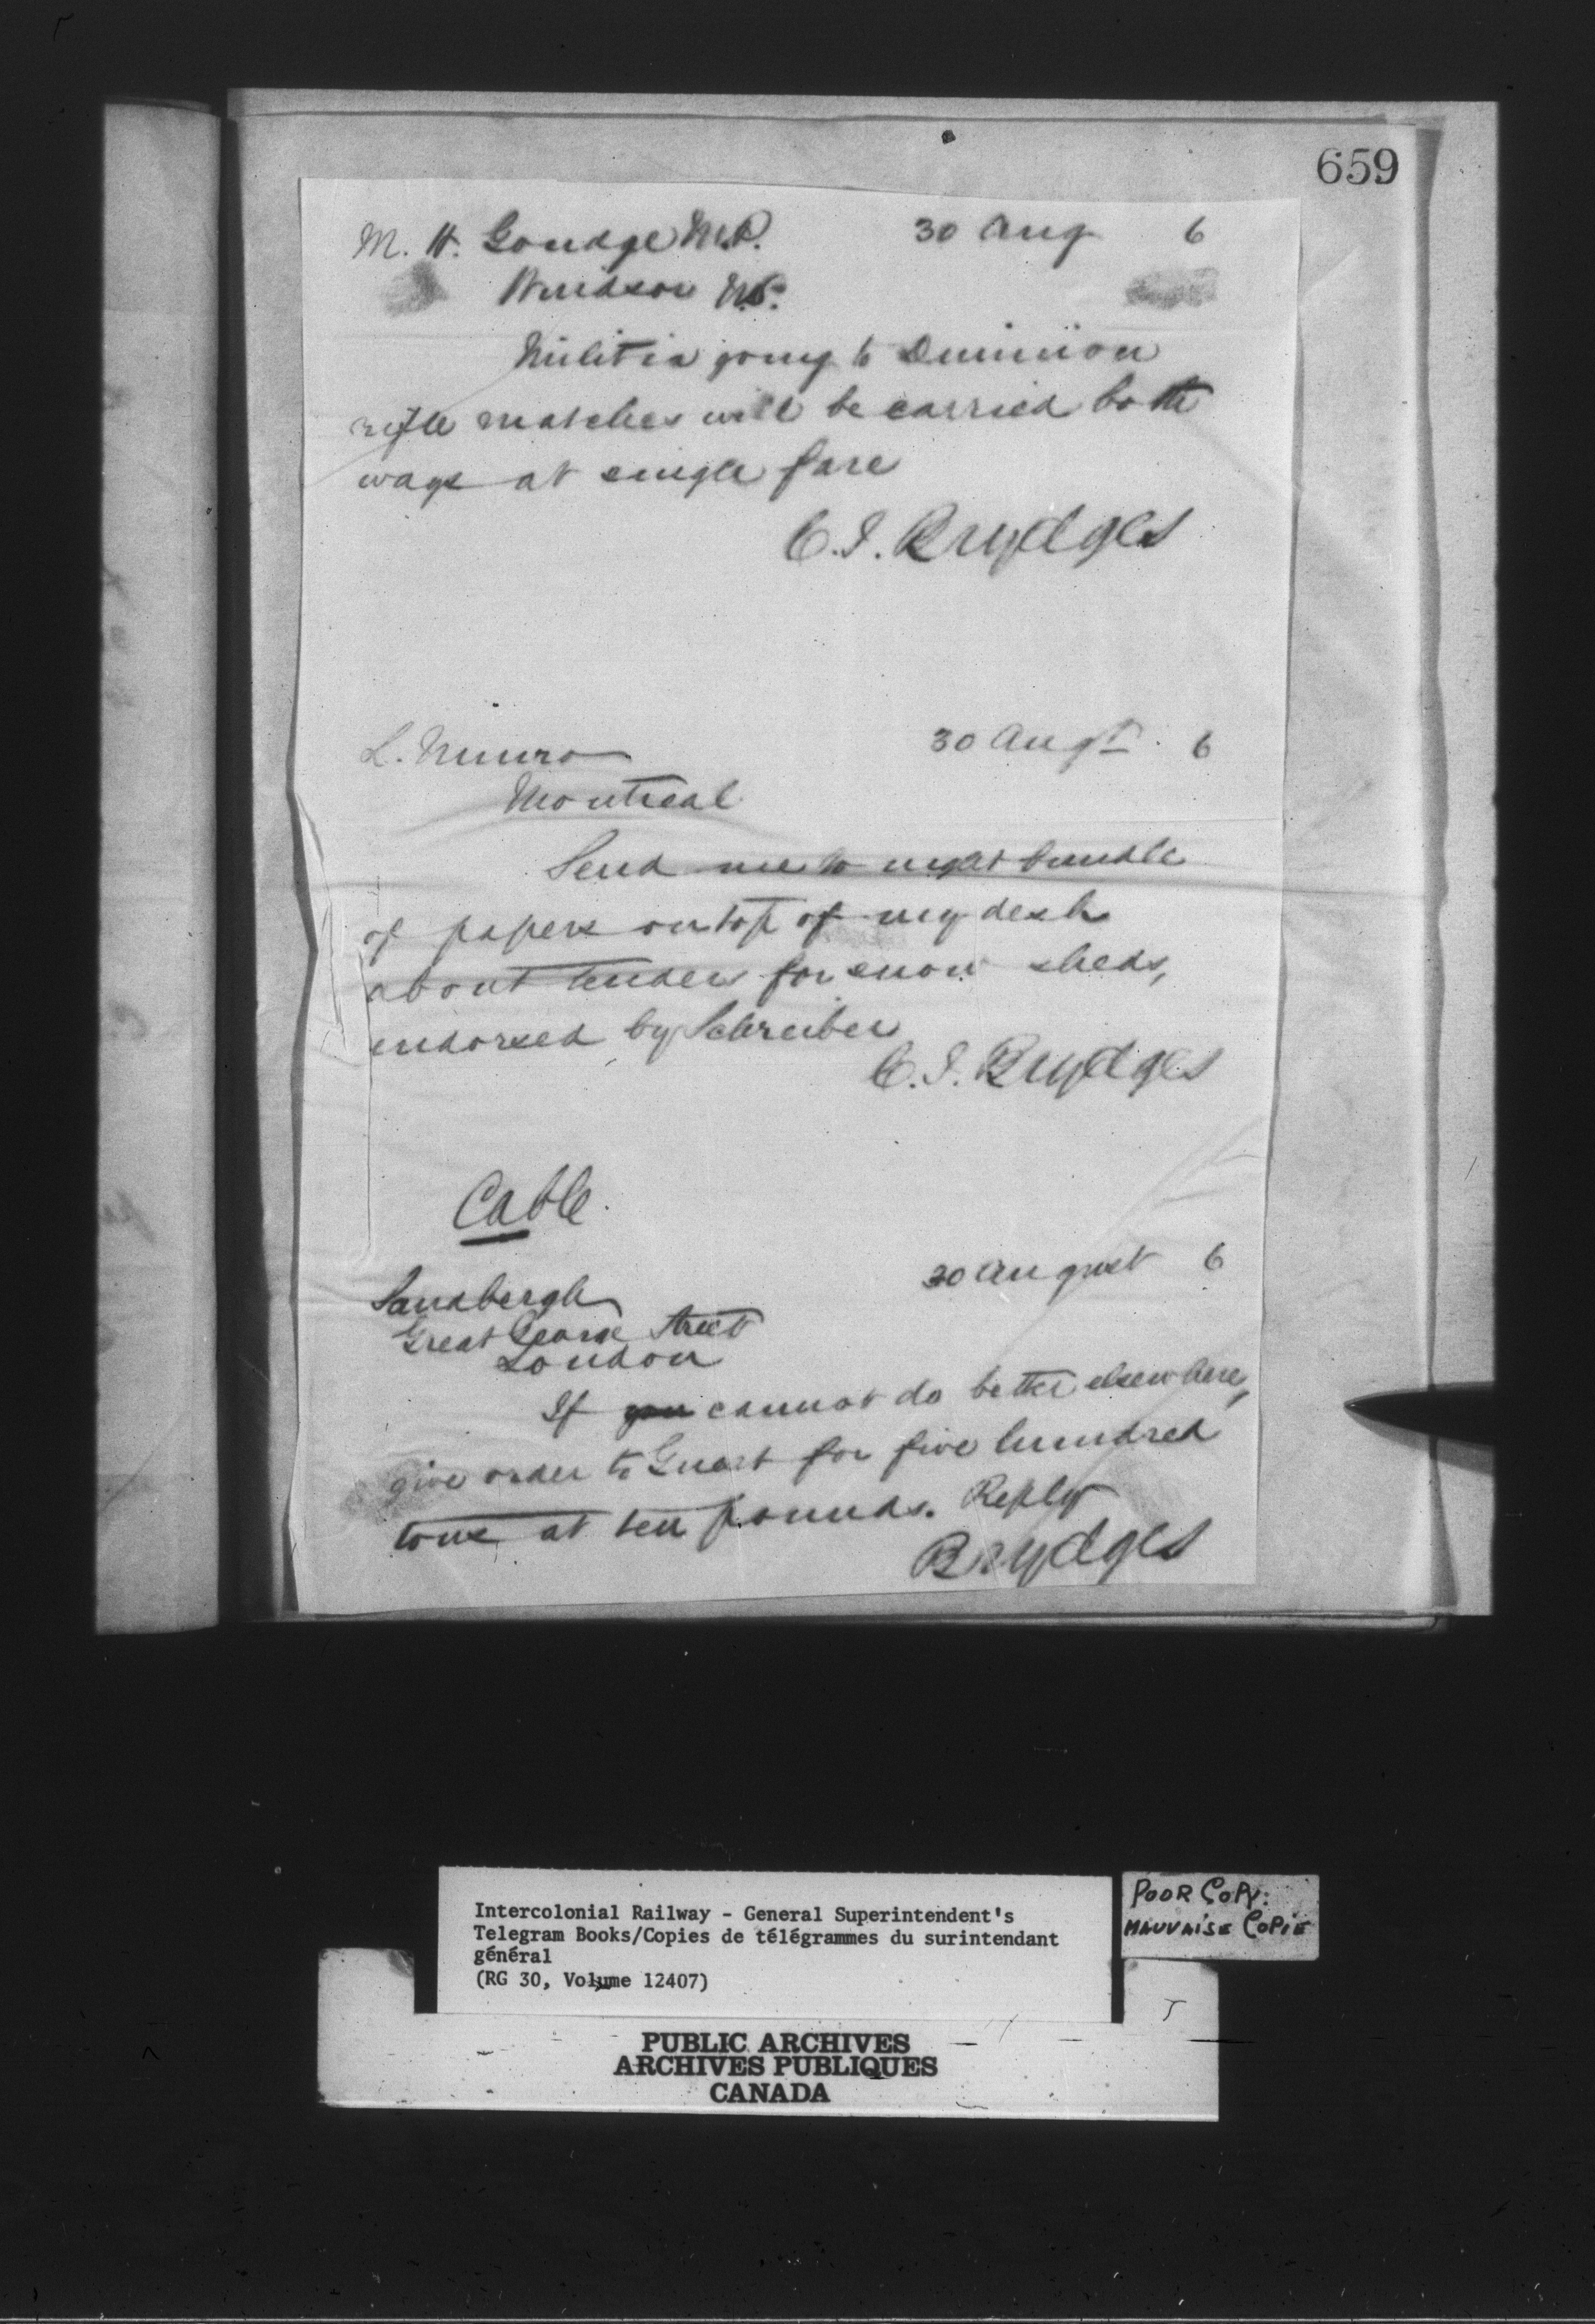 659
M. H. Goudge M.P. 30 Aug 6
Windsor N.S.
Militia going to Dominion
rifle matches will be carried both
ways at single fare
C. J. Brydges
L. Munro 30 Augt. 6
Montreal
Send me to night bundle
of papers on top of my desk
about tenders for snow sheds,
endorsed by Schreiber
C. J. Brydges
Cable.
30 August 6
Sandbergh
Great George Street
London
If you cannot do better elsewhere,
give order to Guest for five hundred
tons at ten pounds. Reply
Brydges
Intercolonial Railway - General Superintendent's
Telegram Books/Copies de télégrammes du surintendant
général
(RG 30, Volume 12407)
POOR COPY.
MAUVAISE COPIE
PUBLIC ARCHIVES
ARCHIVES PUBLIQUES
CANADA